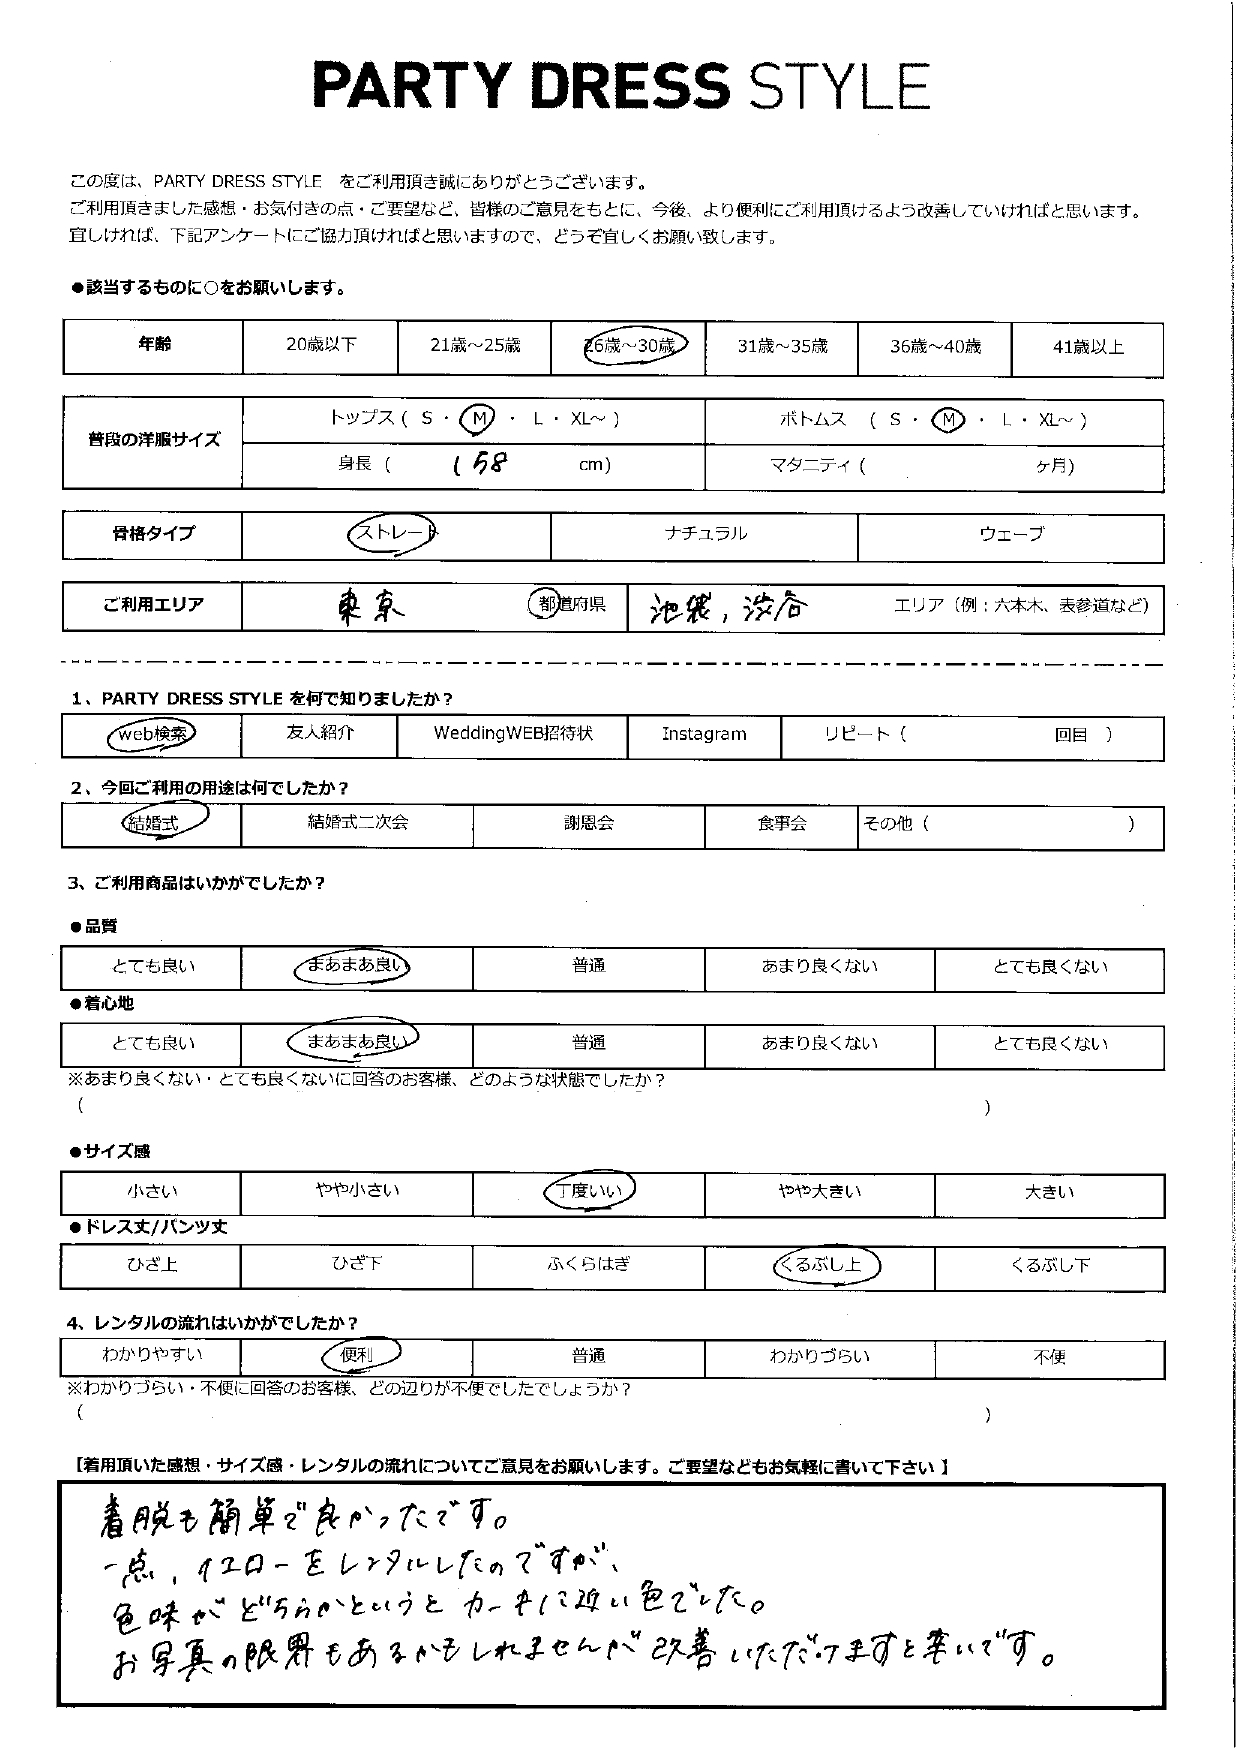 PARTY DRESS STYLE
この度は、PARTY DRESS STYLE をご利用頂き誠にありがとうございます。
ご利用頂きました感想・お気付きの点・ご要望など、皆様のご意見をもとに、今後、より便利にご利用頂けるよう改善していければと思います。
宜しければ、下記アンケートにご協力頂ければと思いますので、どうぞ宜しくお願い致します。
●該当するものに○をお願いします。
年齢 20歳以下 21歳～25歳 26歳～30歳 31歳～35歳 36歳～40歳 41歳以上
普段の洋服サイズ トップス ( S ・ M ・ L ・ XL～ ) ボトムス ( S ・ M ・ L ・ XL～ )
身長 ( 158 cm) マタニティ ( ヶ月)
骨格タイプ ストレート ナチュラル ウェーブ
ご利用エリア 東京 都道府県 池袋, 渋谷 エリア（例：六本木、表参道など）
1、PARTY DRESS STYLE を何で知りましたか？
web検索 友人紹介 WeddingWEB招待状 Instagram リピート ( 回目 )
2、今回ご利用の用途は何でしたか？
結婚式 結婚式二次会 謝恩会 食事会 その他 ( )
3、ご利用商品はいかがでしたか？
●品質
とても良い まあまあ良い 普通 あまり良くない とても良くない
●着心地
とても良い まあまあ良い 普通 あまり良くない とても良くない
※あまり良くない・とても良くないに回答のお客様、どのような状態でしたか？
( )
●サイズ感
小さい やや小さい 丁度いい やや大きい 大きい
●ドレス丈/パンツ丈
ひざ上 ひざ下 ふくらはぎ くるぶし上 くるぶし下
4、レンタルの流れはいかがでしたか？
わかりやすい 便利 普通 わかりづらい 不便
※わかりづらい・不便に回答のお客様、どの辺りが不便でしたでしょうか？
( )
【着用頂いた感想・サイズ感・レンタルの流れについてご意見をお願いします。ご要望などもお気軽に書いて下さい 】
着脱も簡単で良かったです。
一点、イエローをレンタルしたのですが、
色味がどちらかというとカーキに近い色でした。
お写真の限界もあるかもしれませんが改善いただけますと幸いです。